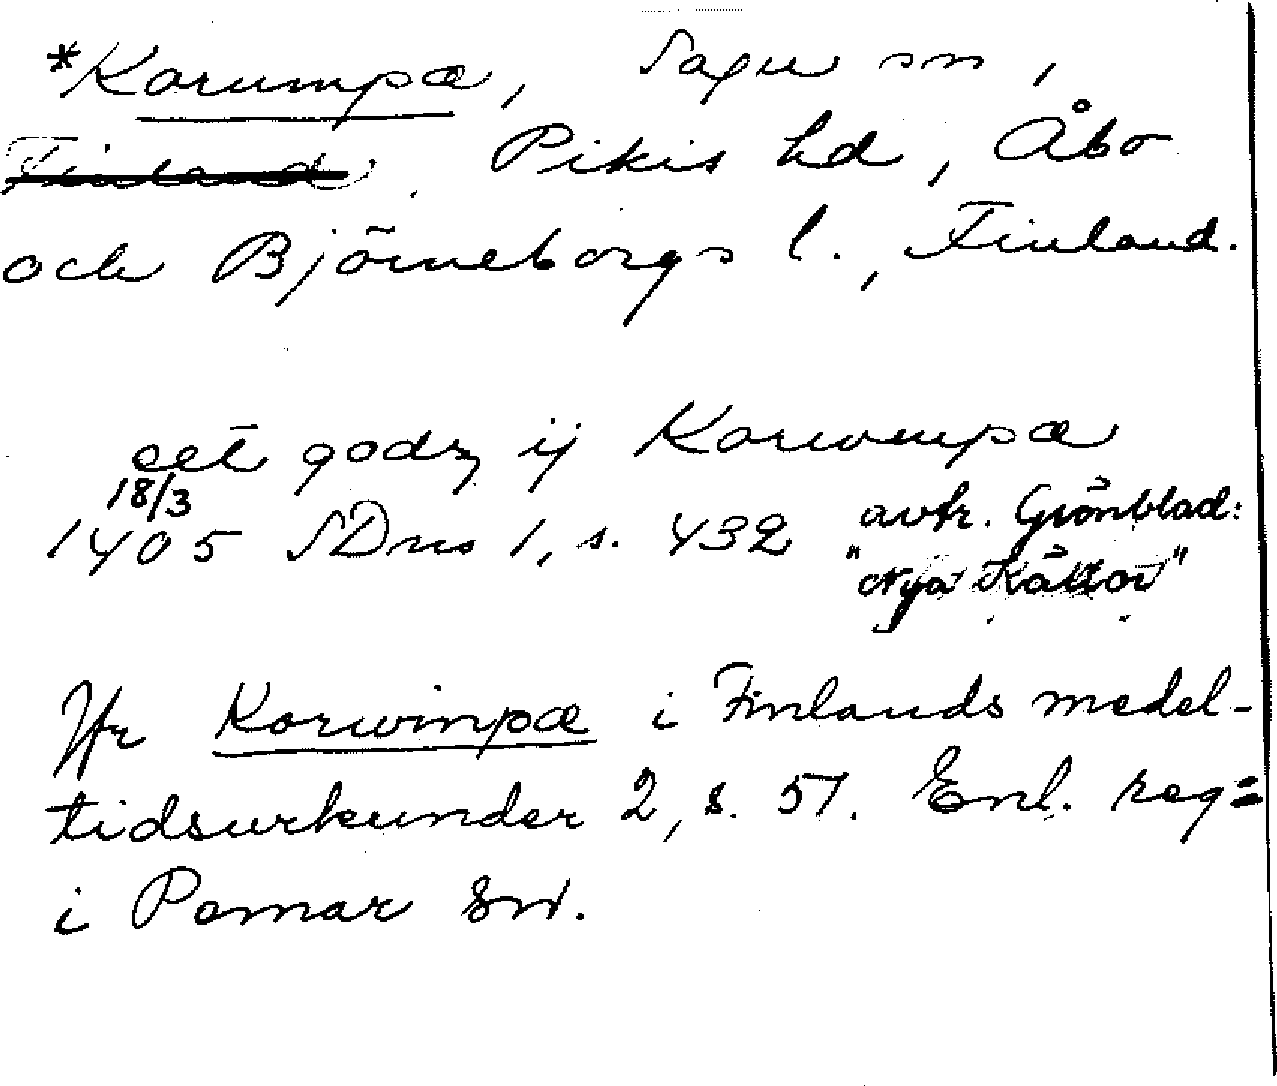 *Korumpæ, Sagu sn,
Finland. Pikis hd, Åbo
och Björneborgs l., Finland.
eet godz ij Koruompæ
18/3
1405 SDns 1, s. 432 avtr. Grönblad:
"Nya Källor"
Jfr Korwimpæ i Finlands medel-
tidsurkunder 2, s. 51. Enl. reg=
i Pemar sn.